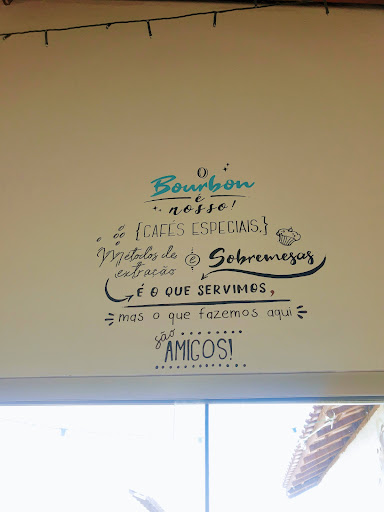 O
Bourbon
é
nosso!
{CAFÉS ESPECIAIS,}
Métodos de extração e Sobremesas
É O QUE SERVIMOS,
mas o que fazemos aqui
são
AMIGOS!